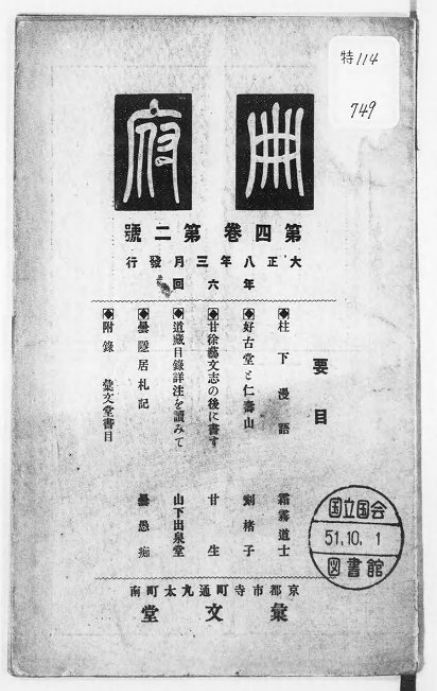 特114
749
冊府
第四卷第二號
大正八年三月發行
年六回
要目
◆柱下漫語 霜霧道士
◆好古堂と仁壽山 剡楮子
◆甘徐藝文志の後に書す 甘生
◆道藏目錄詳註を讀みて 山下出泉堂
◆曇隱居札記 曇愚痴
◆附錄 彙文堂書目
京都市寺町通丸太町南
彙文堂
国立国会
51.10.1
図書館